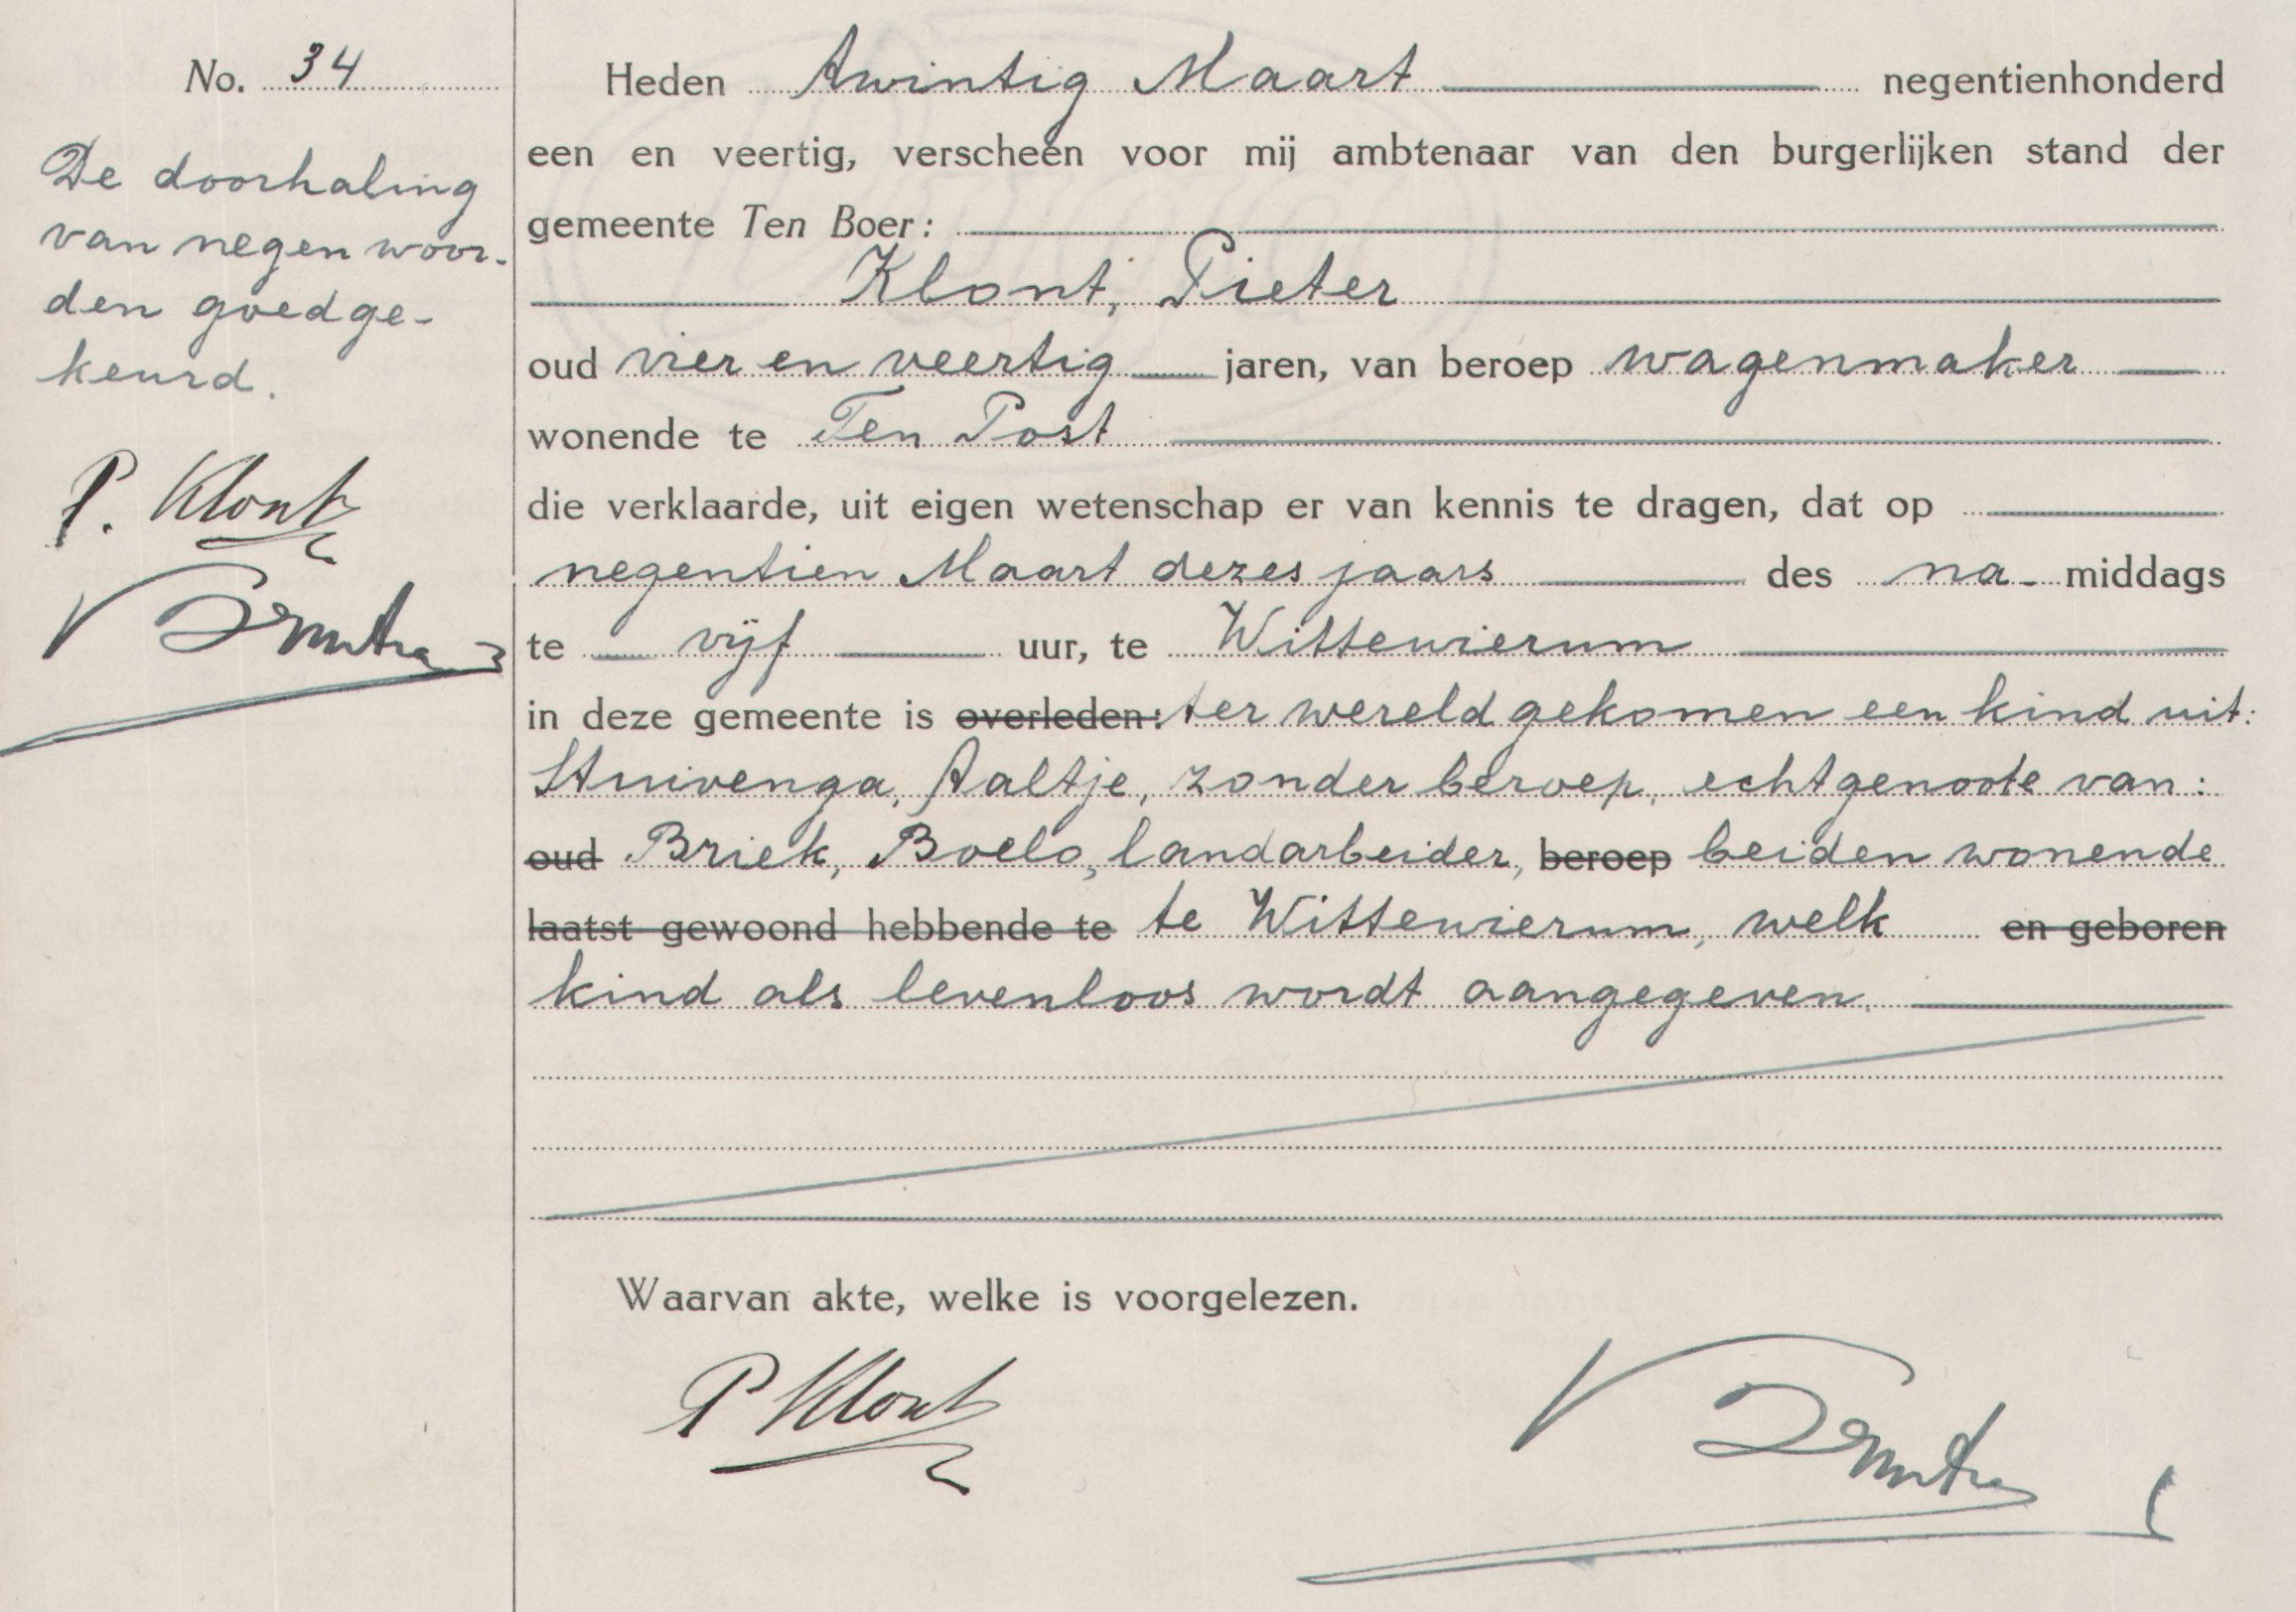 No. 34
De doorhaling
van negen woor-
den goedge-
keurd.
P. Klont
Heden twintig Maart negentienhonderd
een en veertig, verscheen voor mij ambtenaar van den burgerlijken stand der
gemeente Ten Boer:
Klont, Pieter
oud vier en veertig jaren, van beroep wagenmaker
wonende te Ten Post
die verklaarde, uit eigen wetenschap er van kennis te dragen, dat op
negentien Maart dezes jaars des na- middags
te vijf uur, te Wittewierum
in deze gemeente is overleden: ter wereld gekomen een kind uit:
Stuivenga, Aaltje, zonder beroep, echtgenoote van:
oud Briek, Boelo, landarbeider, beroep beiden wonende
laatst gewoond hebbende te te Wittewierum, welk en geboren
kind als levenloos wordt aangegeven.
Waarvan akte, welke is voorgelezen.
P Klont